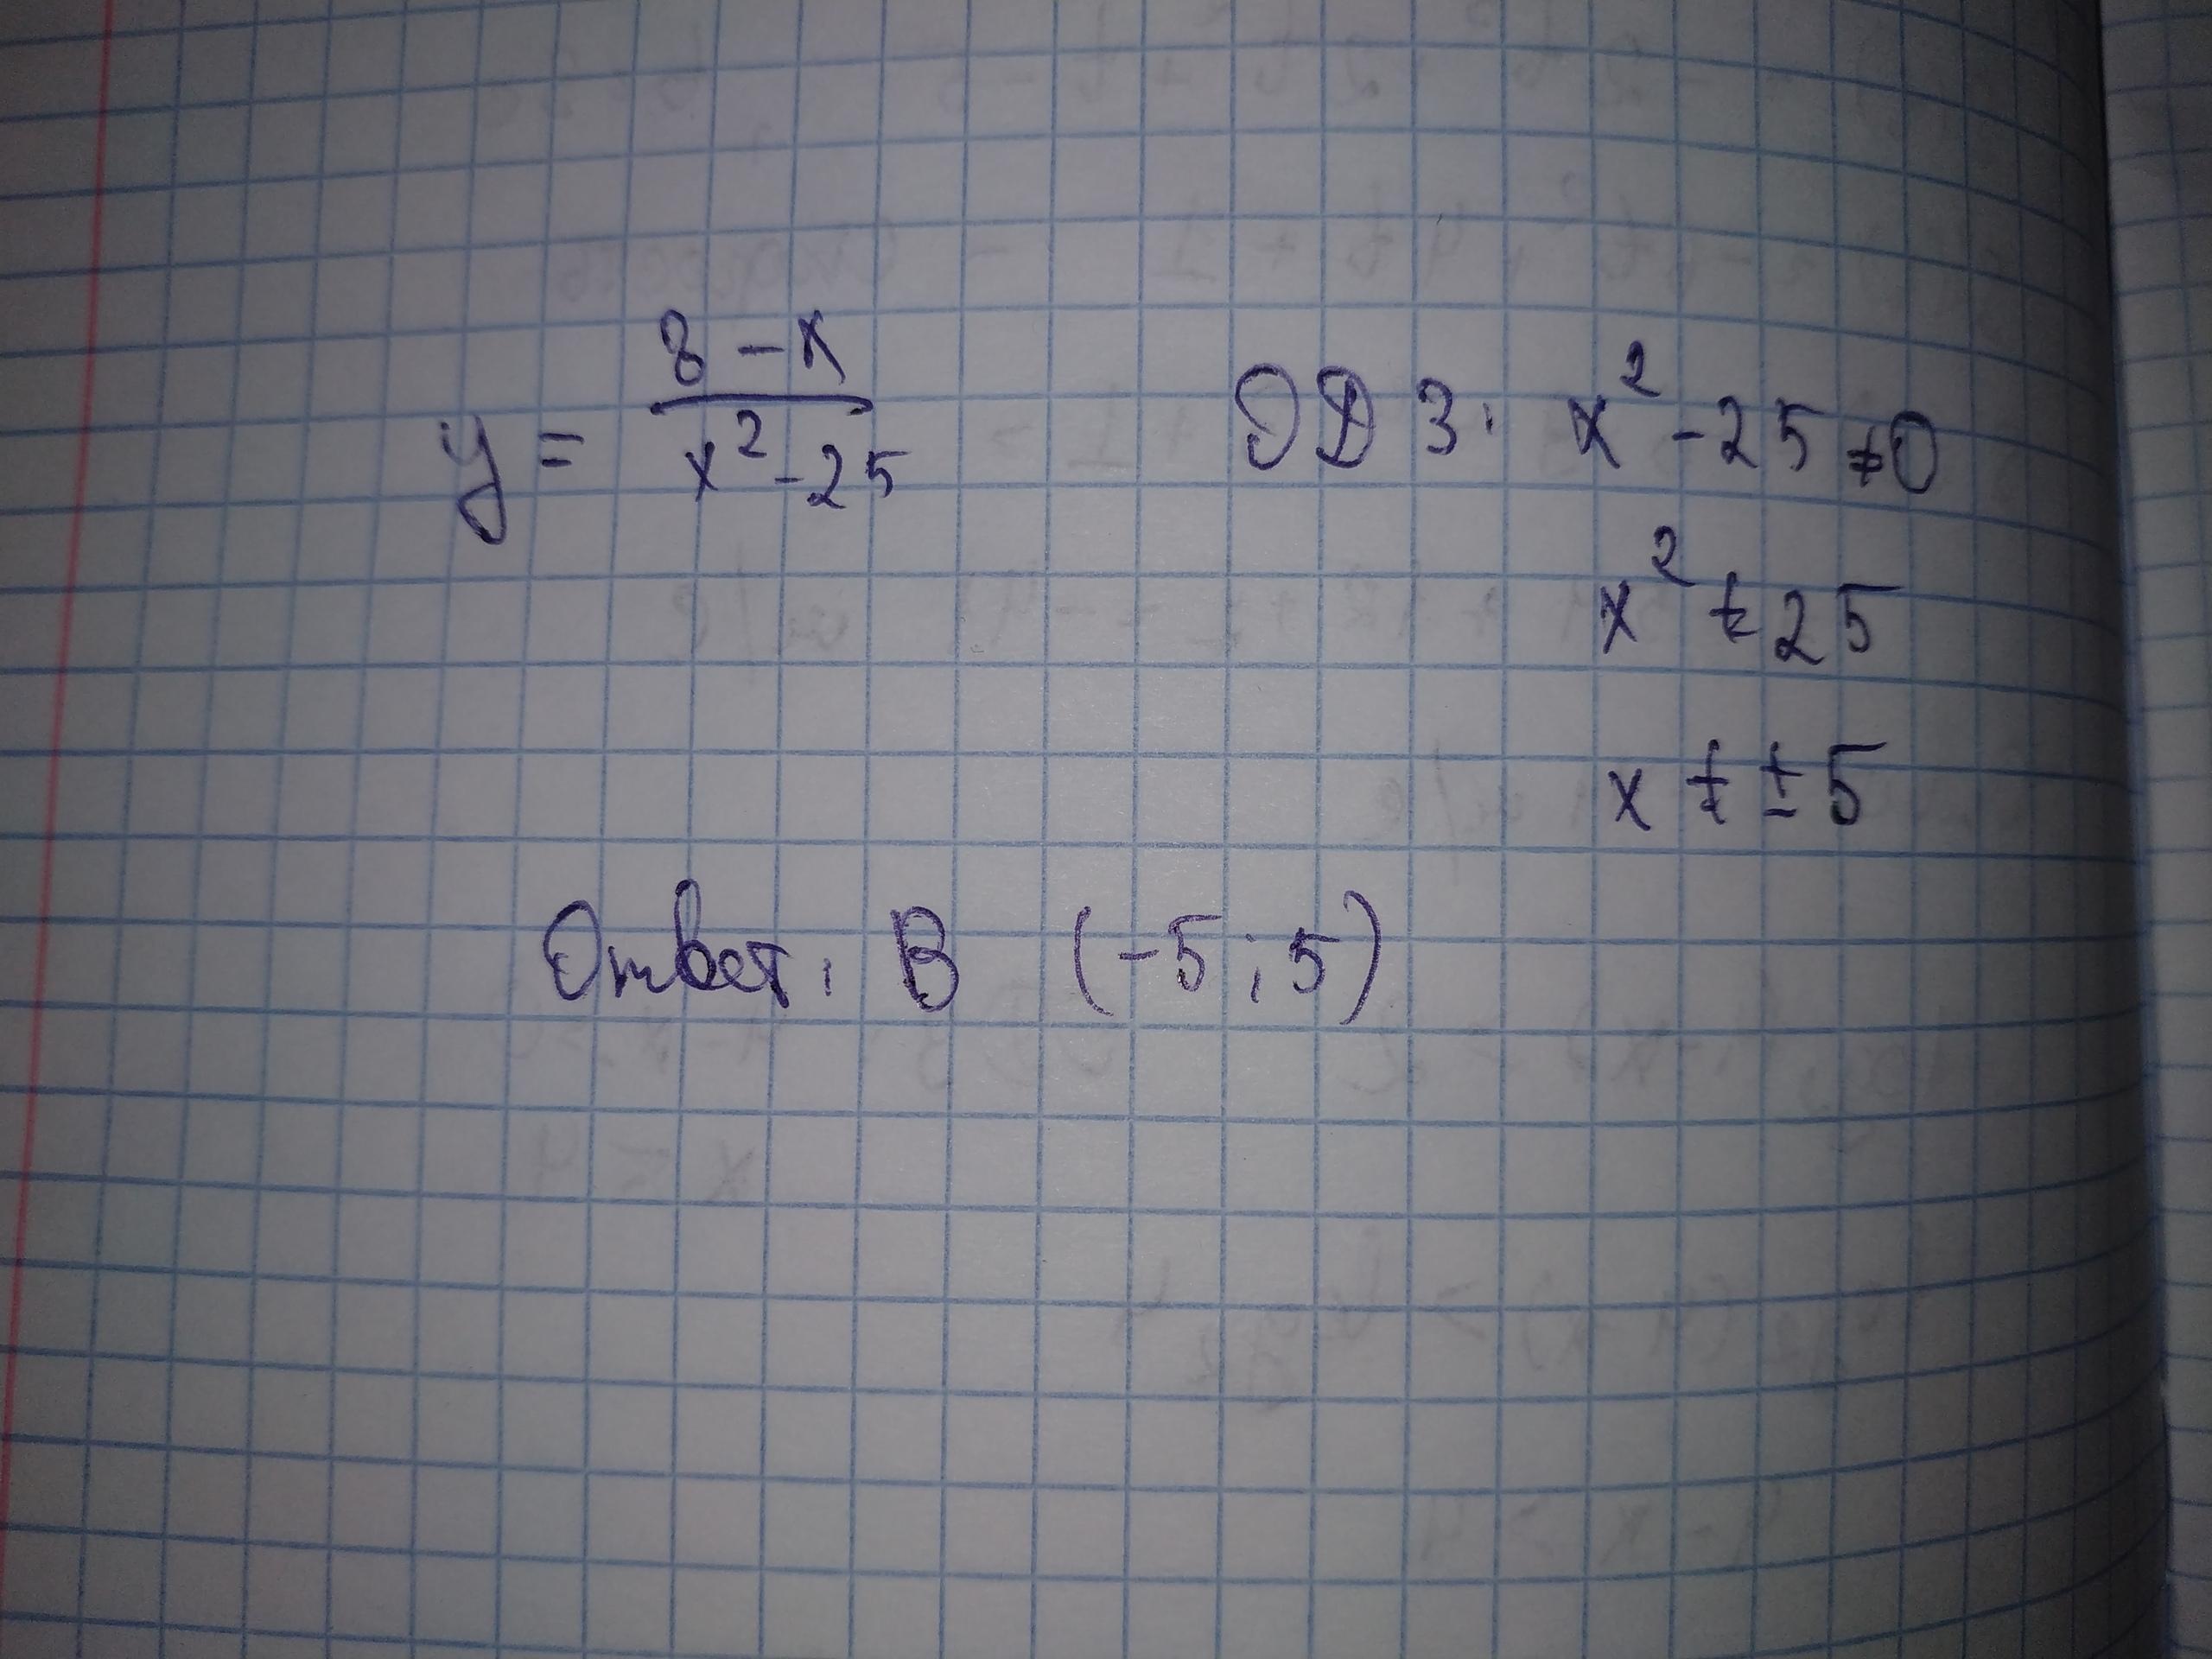 y = (8 - x)/(x² - 25) ОДЗ: x² - 25 ≠ 0
x² ≠ 25
x ≠ ± 5
Ответ: В (-5; 5)